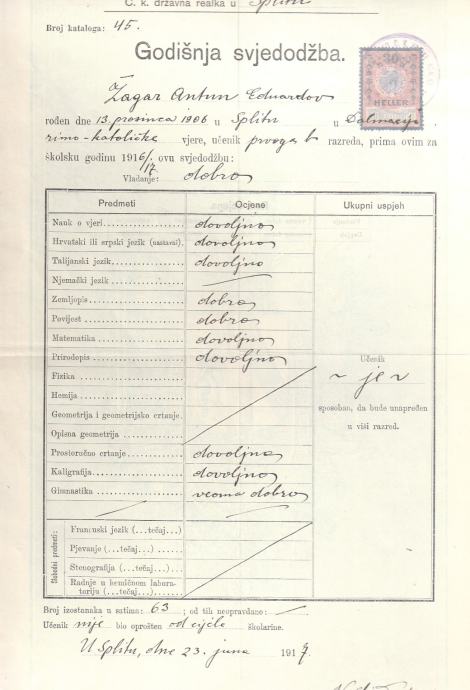 C. k. državna realka u Splitu
Broj kataloga: 45.
Godišnja svjedodžba.
30
HELLER
Žagar Antun Eduardov
rođen dne 13. prosinca 1906 u Splitu u Dalmaciji
rimo-katoličke vjere, učenik prvoga b razreda, prima ovim za
školsku godinu 1916/17 ovu svjedodžbu:
Vladanje: dobro
Predmeti Ocjene Ukupni uspjeh
Nauk o vjeri dovoljno
Hrvatski ili srpski jezik (nastavni). dovoljno
Talijanski jezik dovoljno
Njemački jezik
Zemljopis dobro
Povijest dobro
Matematika dovoljno
Prirodopis dovoljno
Fizika
Hemija
Geometrija i geometrijsko crtanje.
Opisna geometrija
Prostoručno crtanje dovoljno
Kaligrafija dovoljno
Gimnastika veoma dobro
Učenik
~ je ~
sposoban, da bude unapređen
u viši razred.
Slobodni predmeti:
Francuski jezik (...tečaj...)
Pjevanje (...tečaj...)
Stenografija (...tečaj...)
Radnje u hemičnom labora-
toriju (...tečaj...)
Broj izostanaka u satima: 63 ; od tih neopravdano: —
Učenik nije bio oprošten od cijele školarine.
U Splitu, dne 23. juna 1917